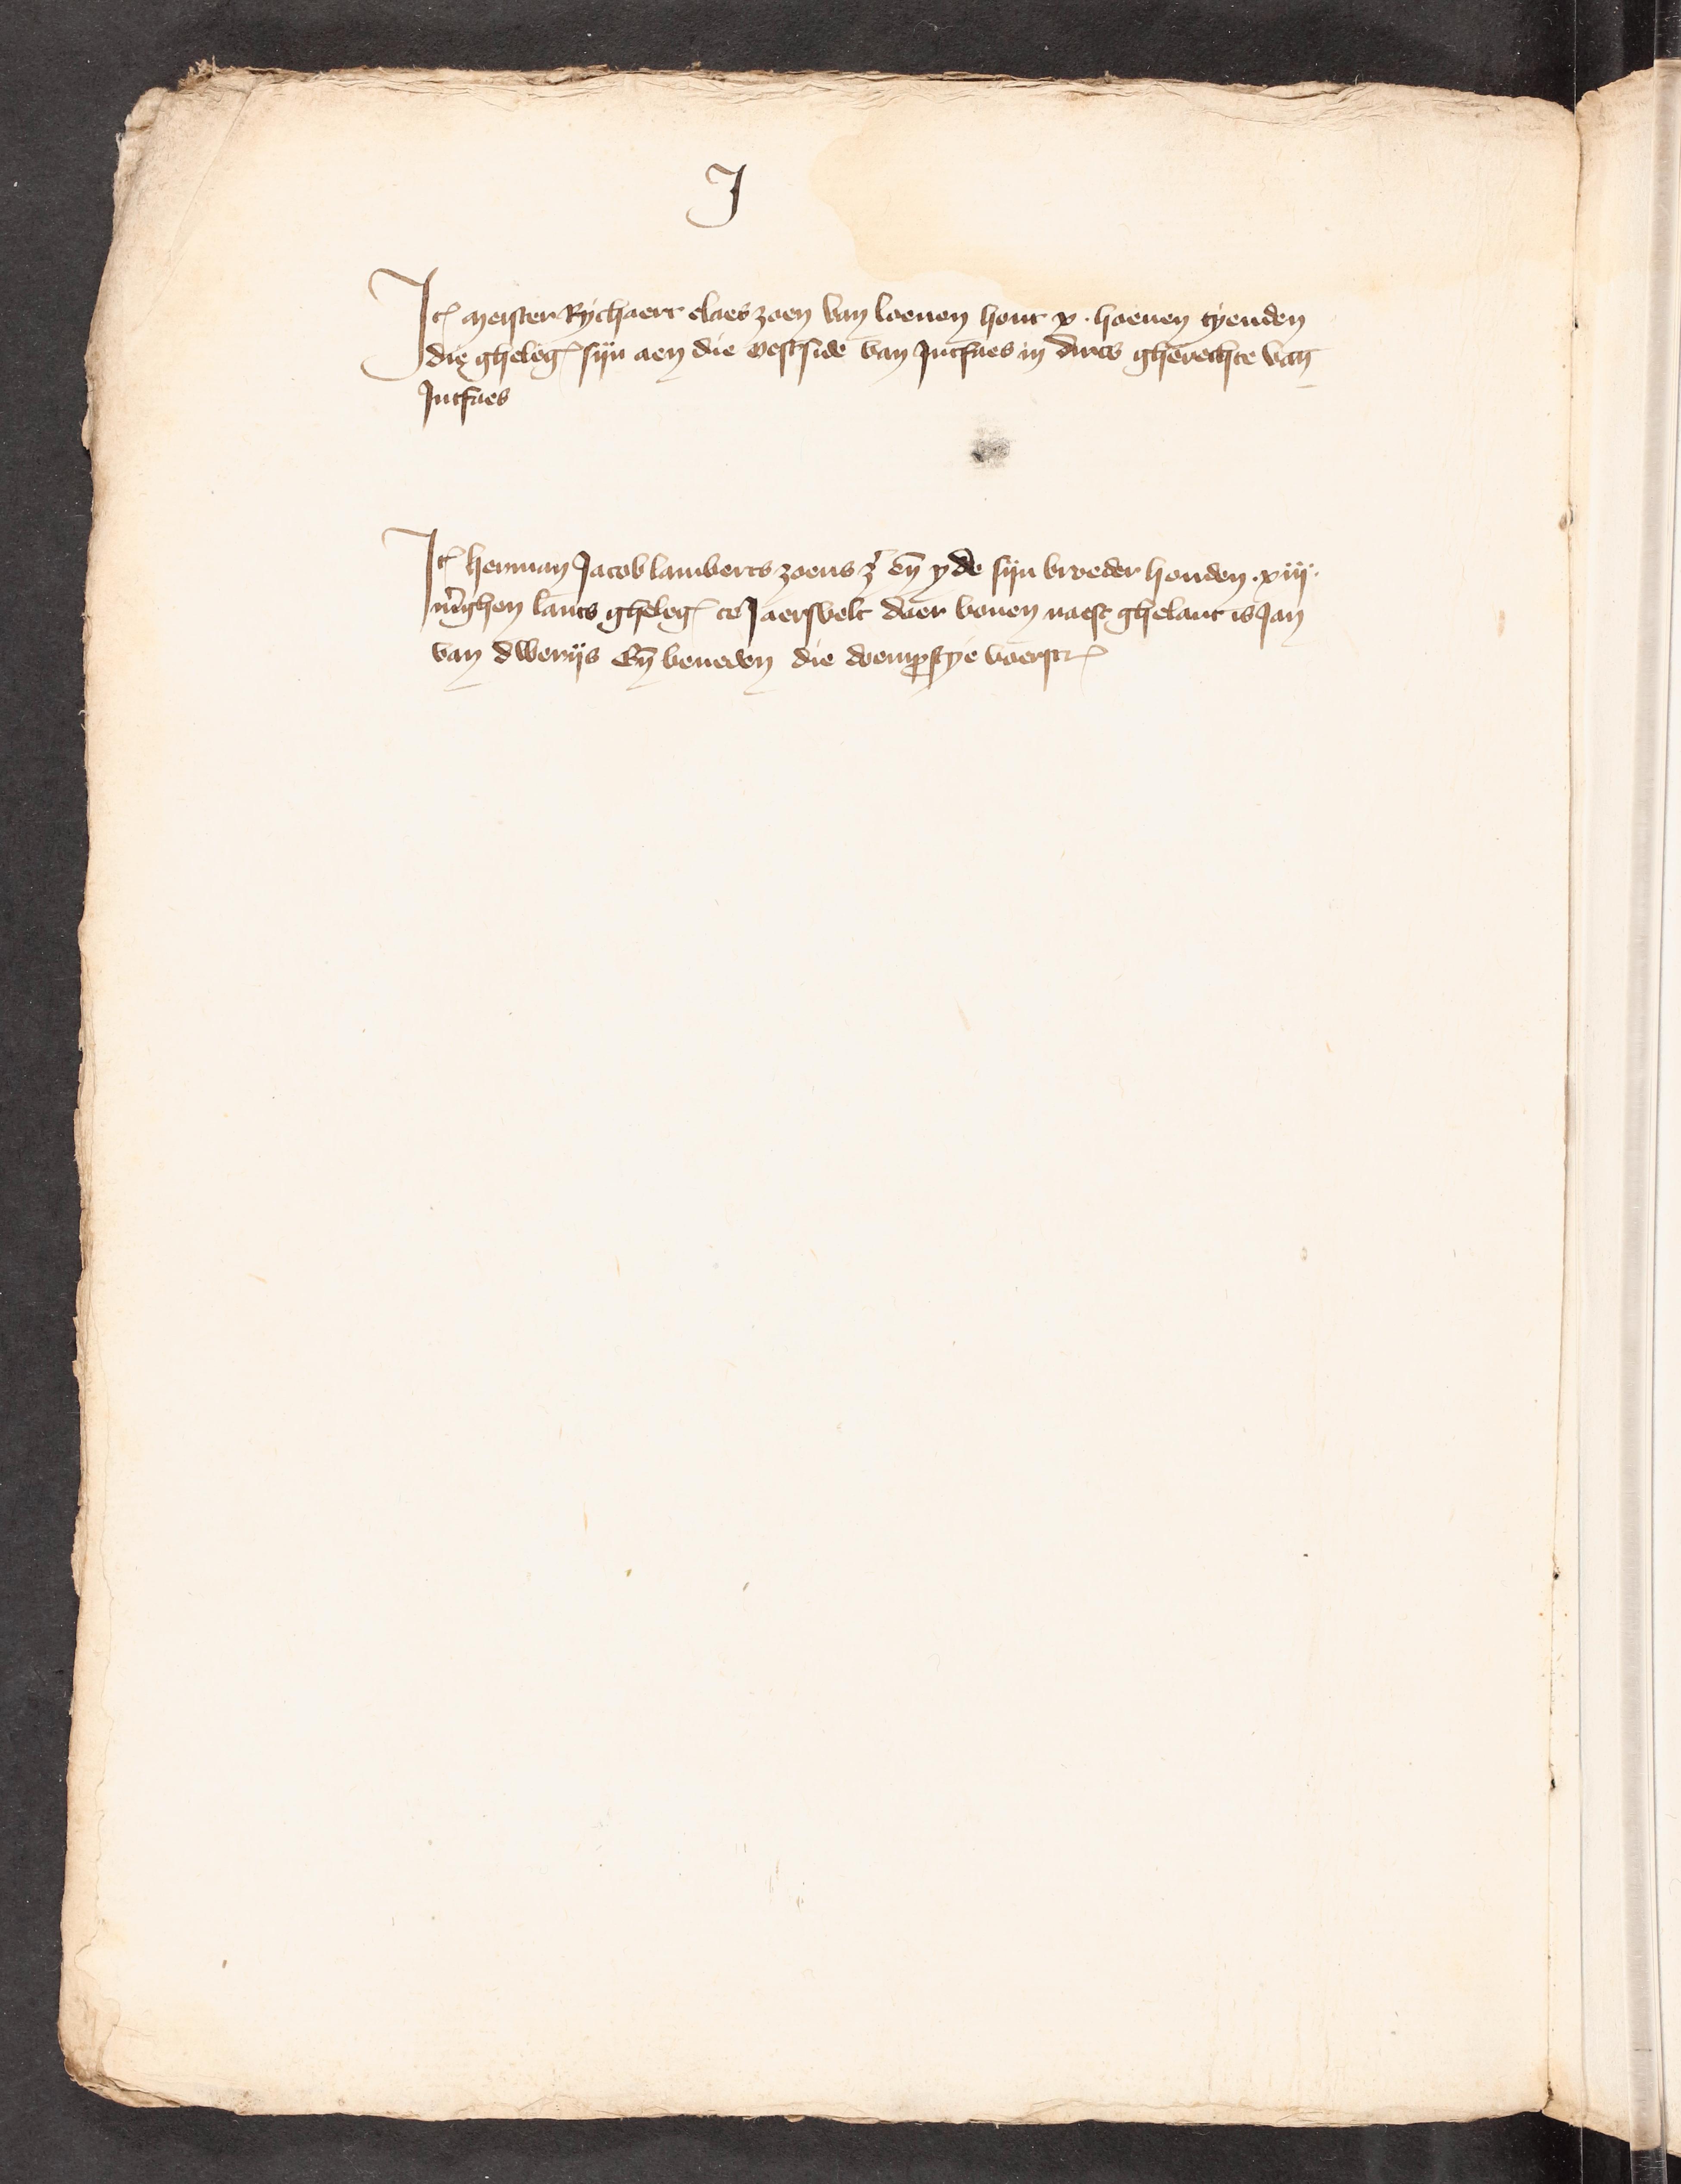 J
Jt meister Rychaert claes zoen van loenen hout x. hoeven tyenden
die gheleg sijn aen die oestside van Jutfaes in dircs gherechte van
Jutfaes
Jt herman Jacob lamberts zoens z en yde sijn broeder houden .xiij.
mghen lants gheleg te Jaersvelt daer boven naest ghelant is Jan
van dwerijs En beneden die doemprostye voerscr